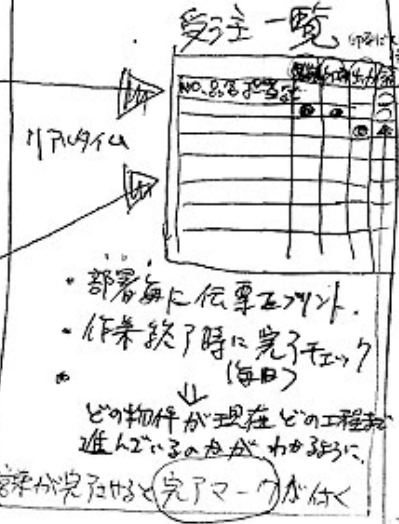 受注一覧
NO.品名 担当など
リアルタイム
・部署毎に伝票をプリント.
・作業終了時に完了チェック
(毎日)
⇓
どの物件が現在どの工程まで
進んでいるのかが、わかるように.
が完了させると完了マークが付く